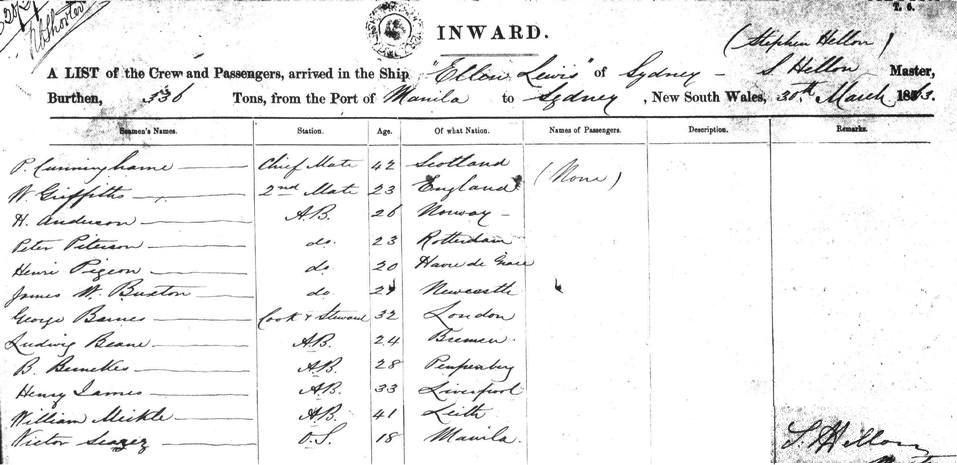 T. S.
INWARD.
(Stephen Hellon)
A LIST of the Crew and Passengers, arrived in the Ship "Ellen Lewis" of Sydney - S Hellon Master,
Burthen, 336 Tons, from the Port of Manila to Sydney, New South Wales, 30th March 1863.
Seamen's Names. Station. Age. Of what Nation. Names of Passengers. Description. Remarks.
P. Cunninghame Chief Mate 42 Scotland (None)
W. Griffiths 2nd Mate 23 England
H. Anderson A.B. 26 Norway -
Peter Piterson do. 23 Rotterdam
Henri Pigeon do 20 Havre de Grace
James W. Buxton do Newcastle
George Barnes Cook & Steward 32 London
Ludwig Beane A.B. 24 Bremen.
B. A.B. 28
Henry James A.B. 33 Liverpool
William Meikle A.B. 41 Leith
Victor O.S. 18 Manila.
S. Hellon